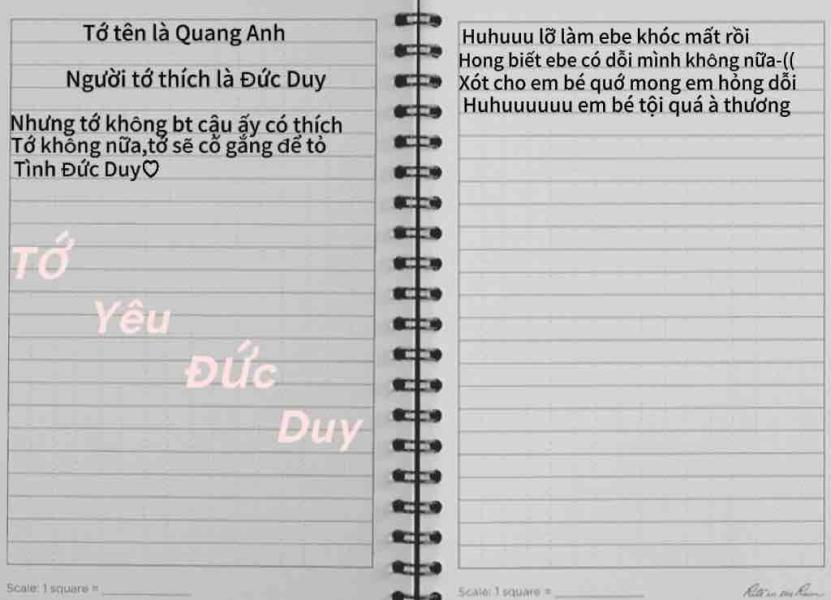 Tớ tên là Quang Anh
Người tớ thích là Đức Duy
Nhưng tớ không bt cậu ấy có thích
Tớ không nữa,tớ sẽ cố gắng để tỏ
Tình Đức Duy♡
TỚ
Yêu
ĐỨc
Duy
Scale: 1 square =
Huhuuu lỡ làm ebe khóc mất rồi
Hong biết ebe có dỗi mình không nữa-((
Xót cho em bé quớ mong em hỏng dỗi
Huhuuuuuu em bé tội quá à thương
Scale: 1 square =